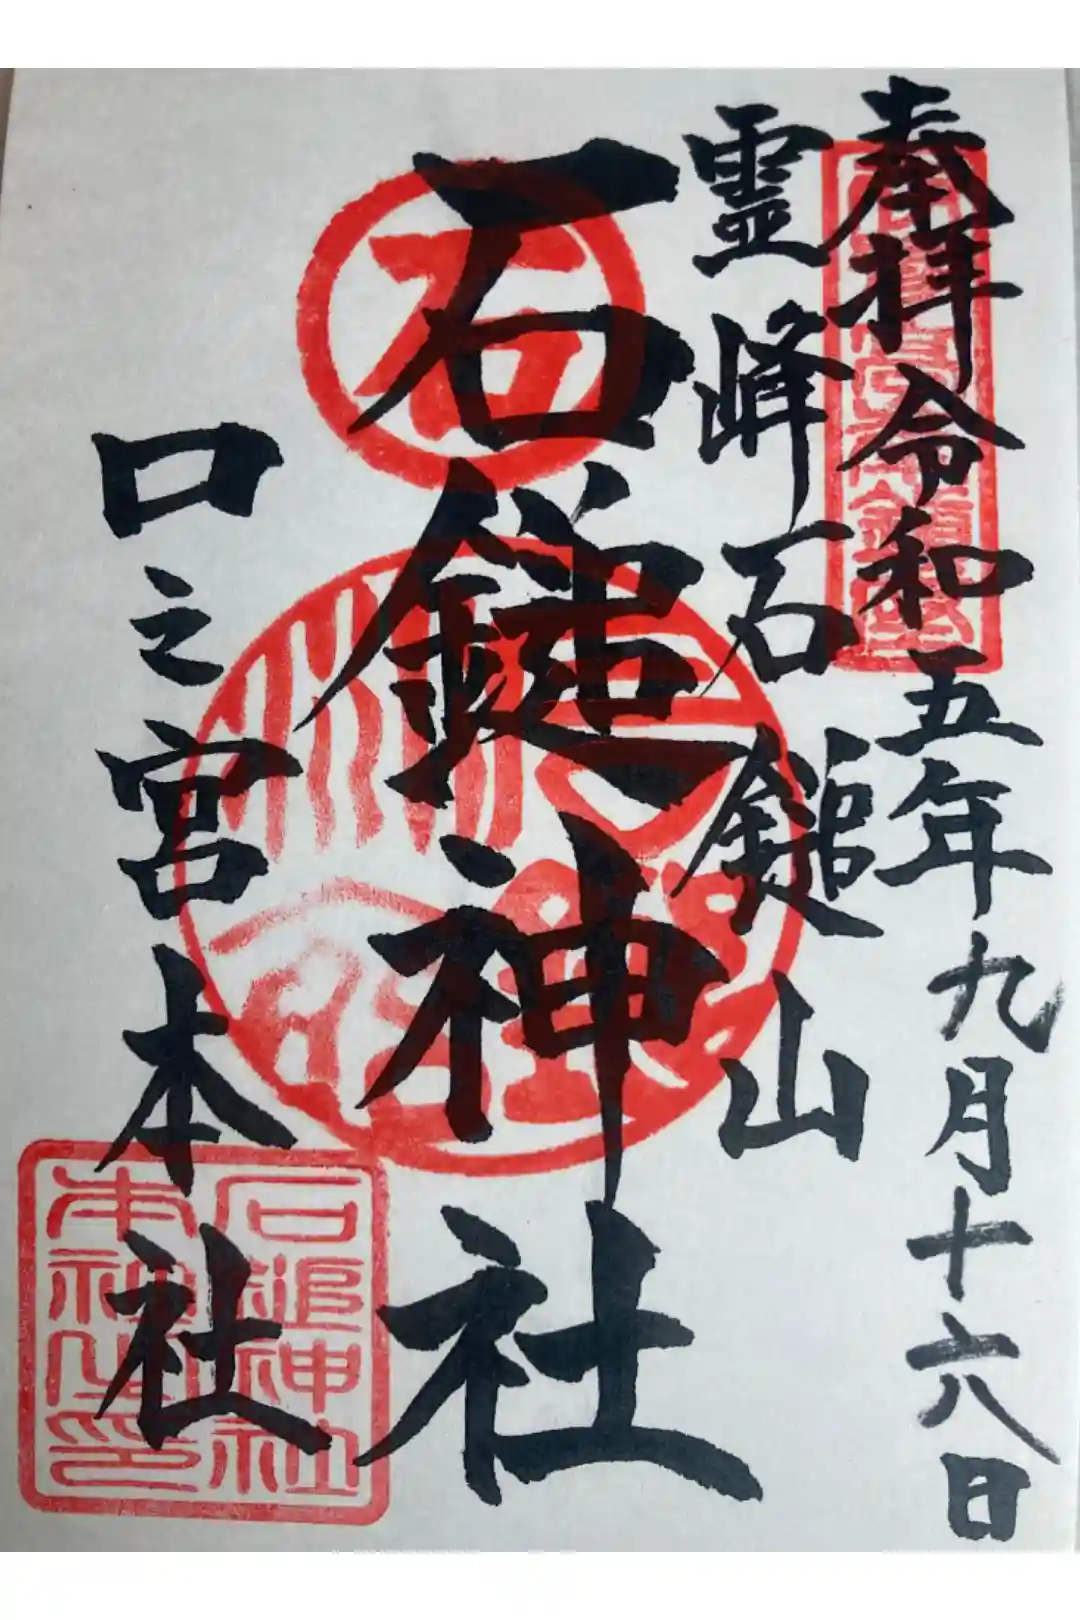 奉拝令和五年九月十六日
霊峰石鎚山
石鎚神社
口之宮本社
石
石鎚神社
本社